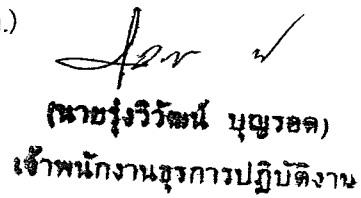 .)
(นายรุ่งวิวัฒน์ บุญรอด)
เจ้าพนักงานธุรการปฏิบัติงาน